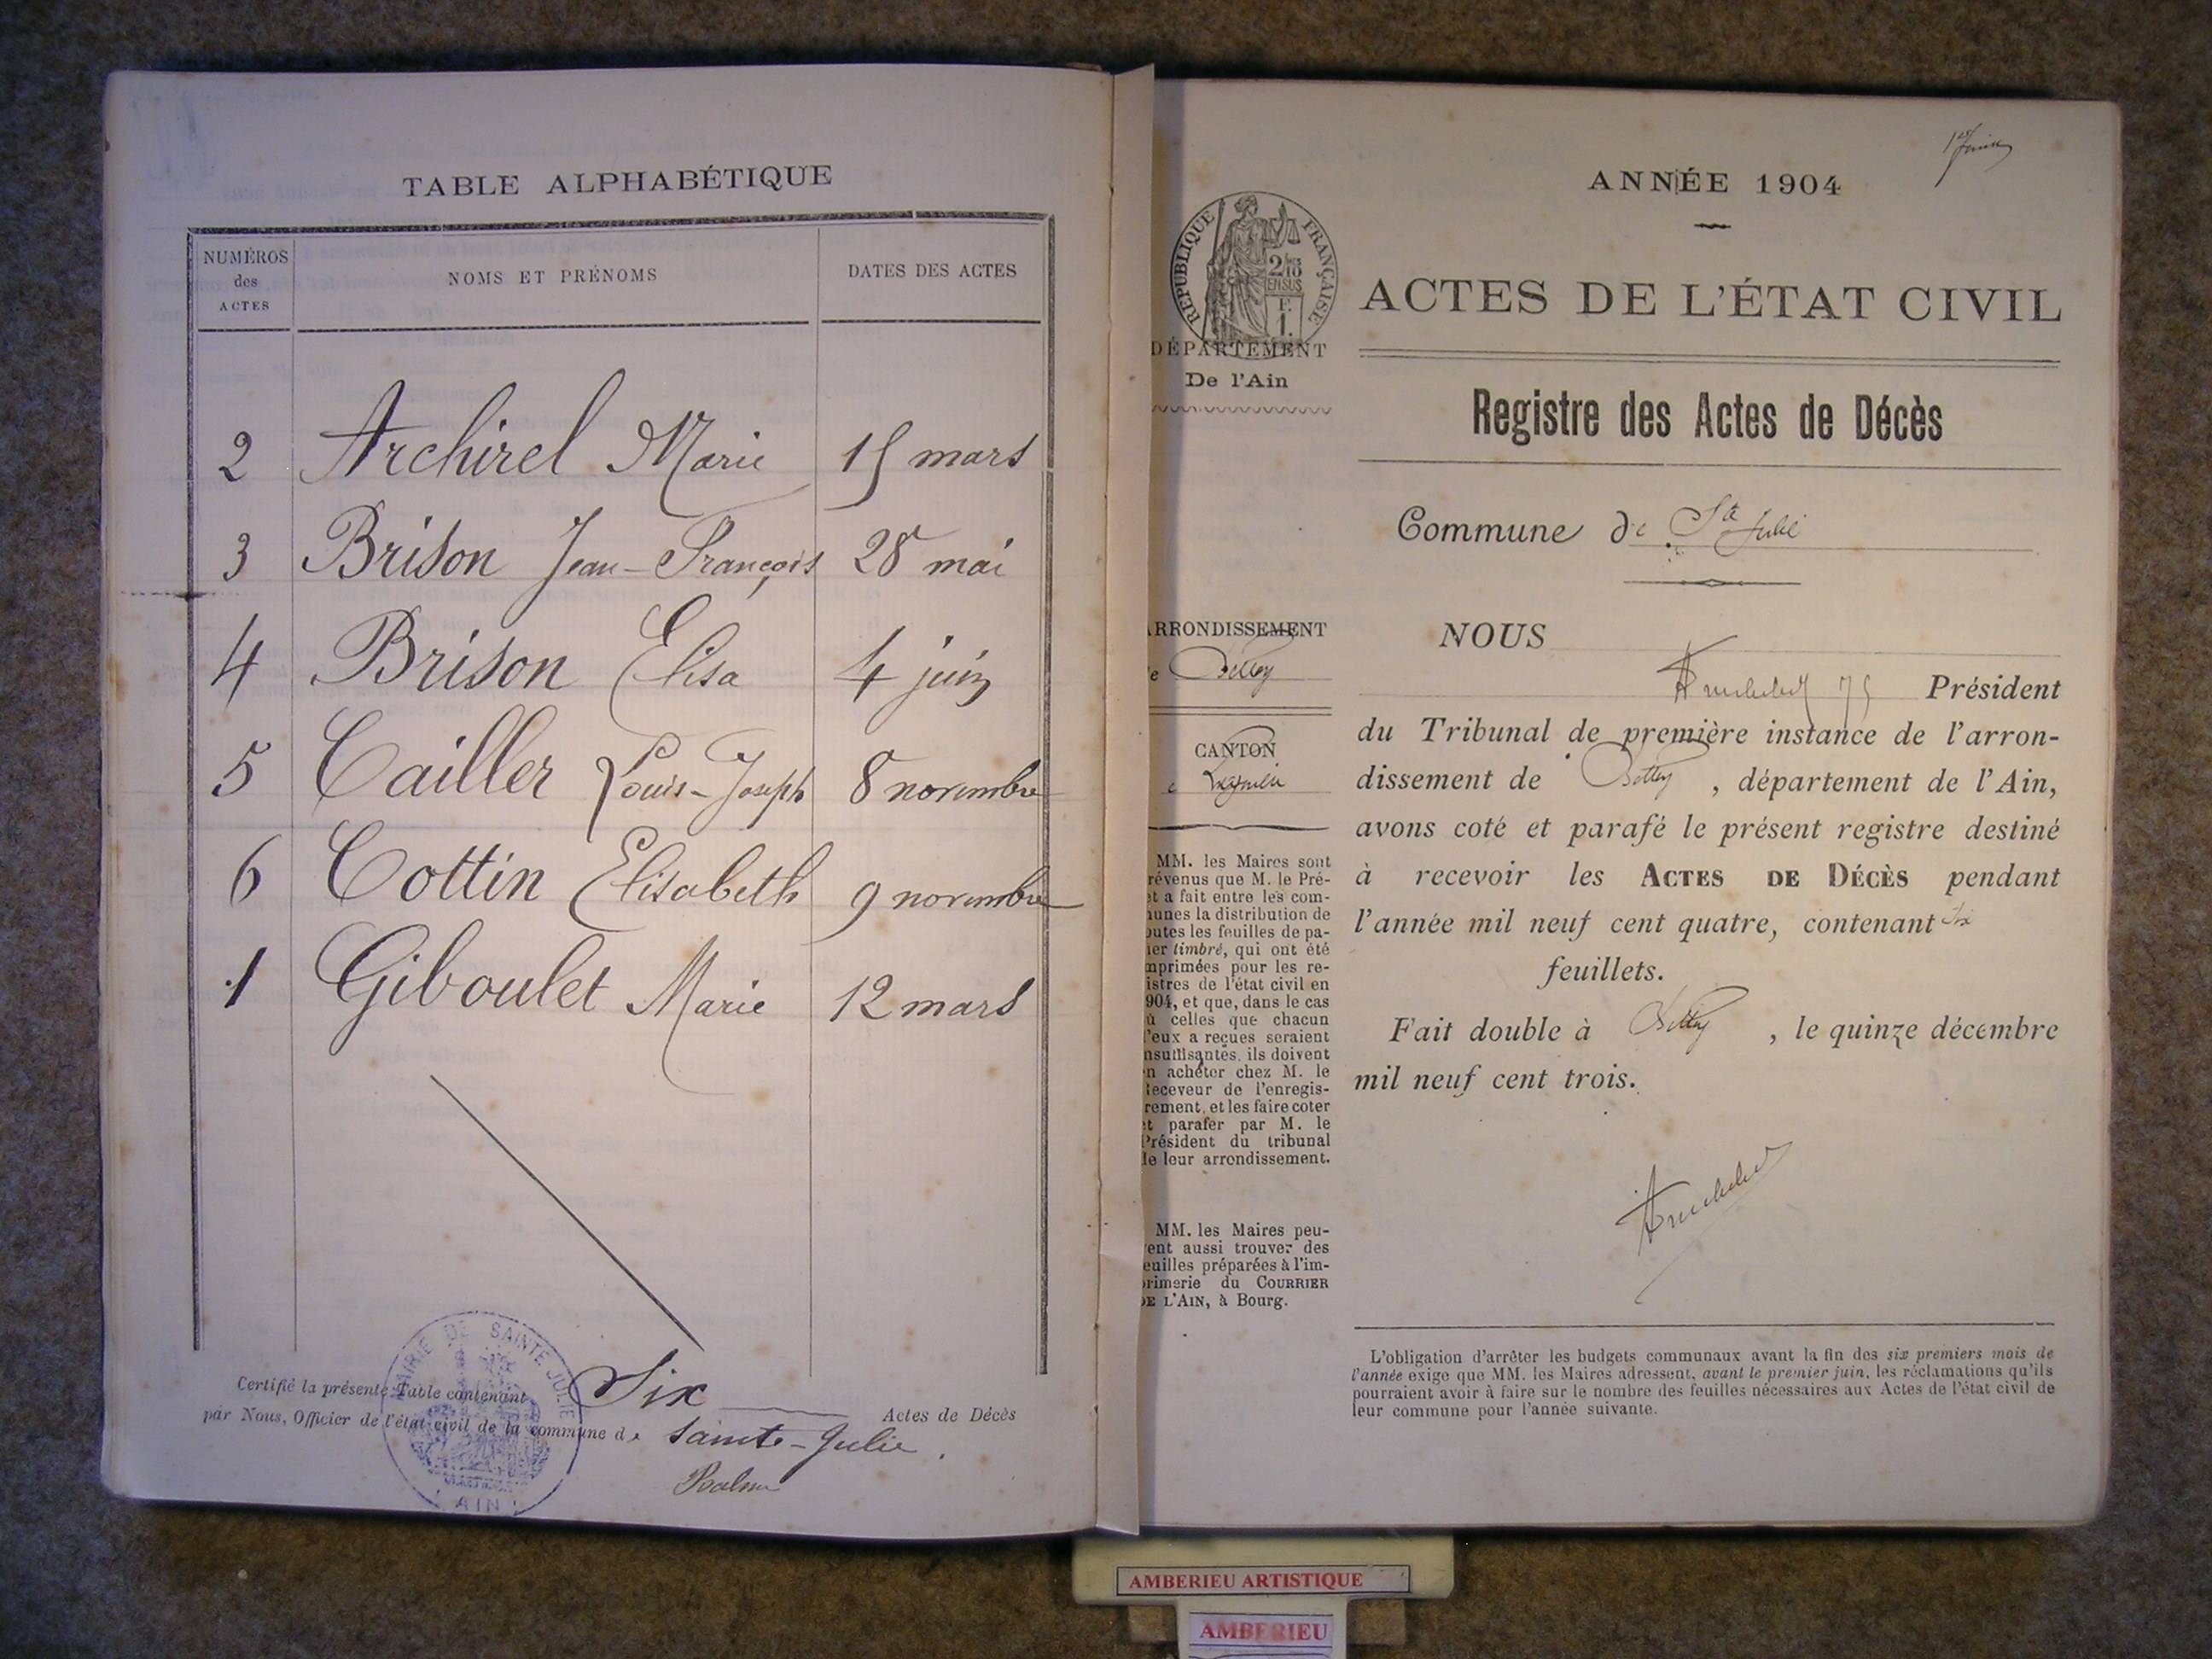 TABLE ALPHABÉTIQUE
NUMÉROS
des
ACTES
NOMS ET PRÉNOMS
DATES DES ACTES
2 Archirel Marie 15 mars
3 Brison Jean-François 28 mai
4 Brison Elisa 4 juin
5 Cailler Louis-Joseph 8 novembre
6 Cottin Elisabeth 9 novembre
1 Giboulet Marie 12 mars
Certifié la présente Table contenant Six Actes de Décès
par Nous, Officier de l'état civil de la commune de Sainte-Julie.
MAIRIE DE SAINTE JULIE
AIN
1er
ANNÉE 1904
RÉPUBLIQUE FRANÇAISE
2/10
EN SUS
F.
1.
ACTES DE L'ÉTAT CIVIL
DÉPARTEMENT
De l'Ain
Registre des Actes de Décès
Commune de Ste Julie
ARRONDISSEMENT
Belley
CANTON
Lagnieu
MM. les Maires sont
révenus que M. le Pré-
et a fait entre les com-
unes la distribution de
outes les feuilles de pa-
ier timbré, qui ont été
mprimées pour les re-
istres de l'état civil en
904, et que, dans le cas
ù celles que chacun
'eux a reçues seraient
nsuffisantes, ils doivent
n acheter chez M. le
Receveur de l'enregis-
rement, et les faire coter
et parafer par M. le
Président du tribunal
de leur arrondissement.
MM. les Maires peu-
ent aussi trouver des
euilles préparées à l'im-
rimerie du COURRIER
DE L'AIN, à Bourg.
NOUS
Président
du Tribunal de première instance de l'arron-
dissement de Belley, département de l'Ain,
avons coté et parafé le présent registre destiné
à recevoir les ACTES DE DÉCÈS pendant
l'année mil neuf cent quatre, contenant six
feuillets.
Fait double à Belley, le quinze décembre
mil neuf cent trois.
L'obligation d'arrêter les budgets communaux avant la fin des six premiers mois de
l'année exige que MM. les Maires adressent, avant le premier juin, les réclamations qu'ils
pourraient avoir à faire sur le nombre des feuilles nécessaires aux Actes de l'état civil de
leur commune pour l'année suivante.
AMBERIEU ARTISTIQUE
AMBERIEU